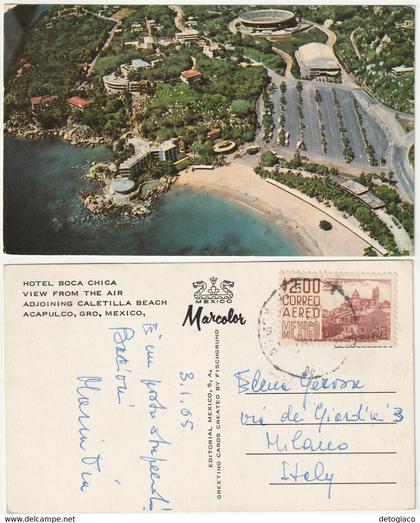 HOTEL BOCA CHICA
VIEW FROM THE AIR
ADJOINING CALETILLA BEACH
ACAPULCO, GRO, MEXICO,
MEXICO
Marcolor
EDITORIAL MEXICO, S, A,
GREETING CARDS CREATED BY FISCHGRUND
2.00
CORREO
AEREO
MEXICO
È un posto stupendo
3.1.65
Bacioni
Maria Pia
Elena
via dei Giardini 3
Milano
Italy
© delcampe.net
detogiaco